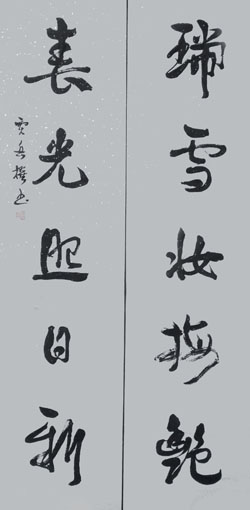 瑞雪妆梅艳
春光照日新